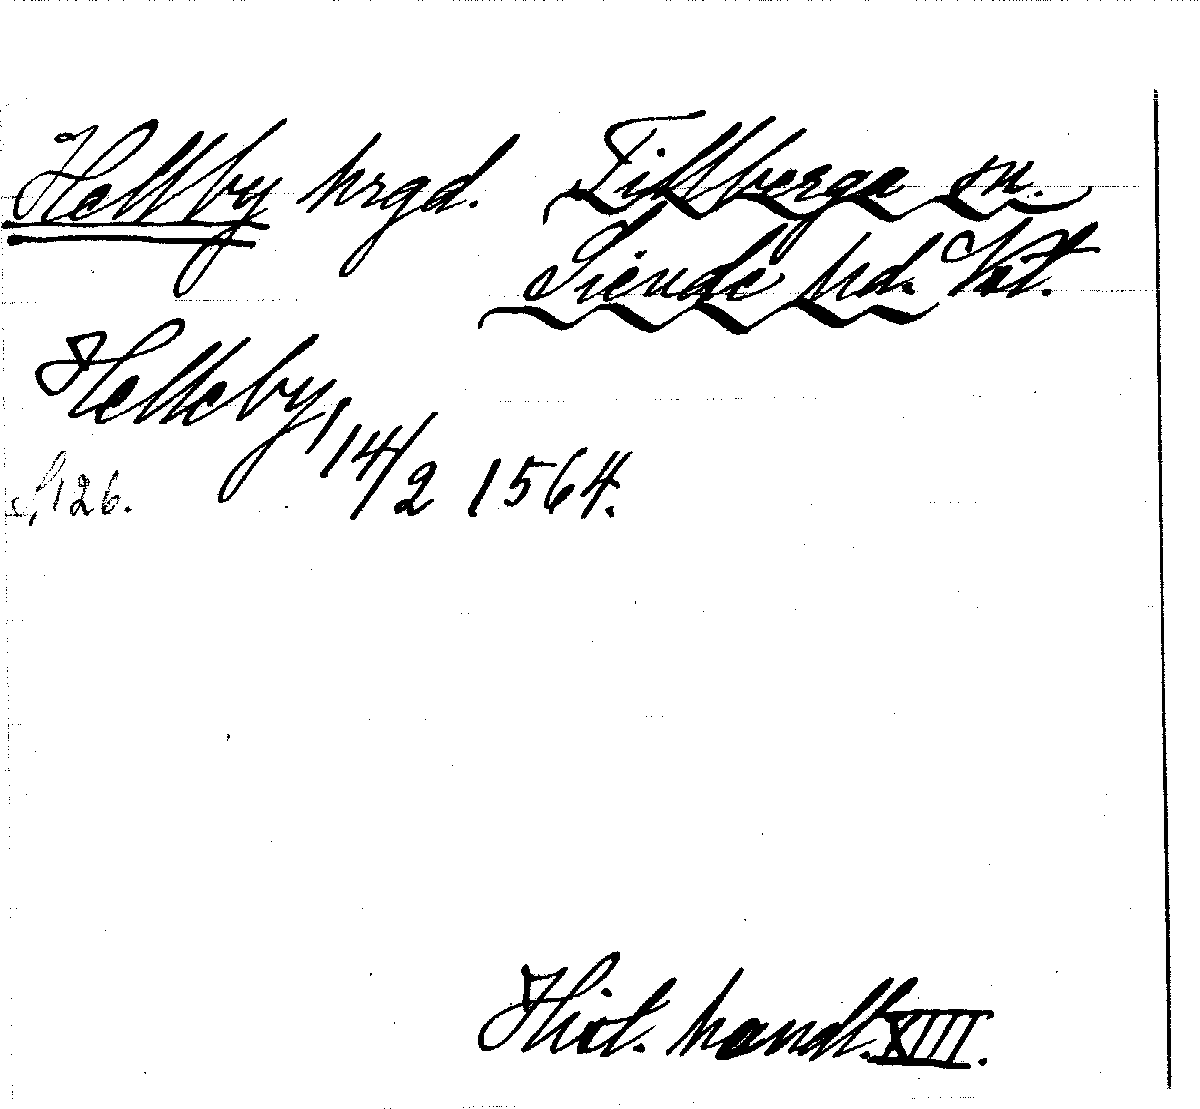 Hellby hrgd. Tillberga sn.
Siende hd. Vst.
Helleby, 14/2 1564.
S. 126.
Hist. handl. XIII.